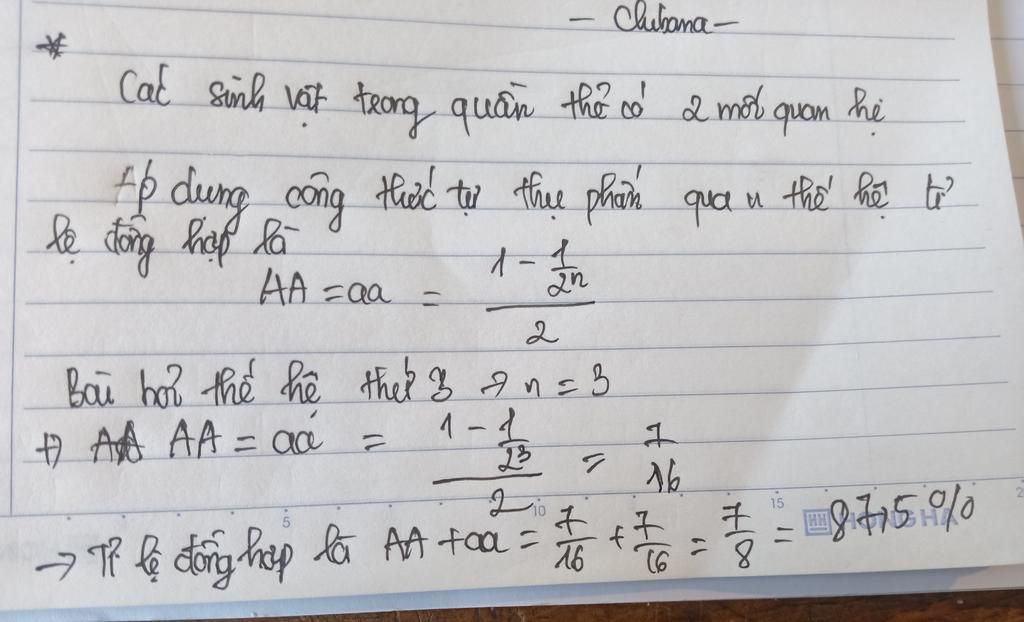 — Clubama —
*
Các sinh vật trong quần thể có 2 mối quan hệ
Áp dụng công thức tự thụ phấn qua n thế hệ tỉ
lệ đồng hợp là
AA = aa = (1 - 1/2^n)/2
Bài hỏi thế hệ thứ 3 → n = 3
AA = aa = (1 - 1/2^3)/2 = 7/16
→ Tỉ lệ đồng hợp là AA + aa = 7/16 + 7/16 = 7/8 = 87,5%
5 10 15
HH HONG HA